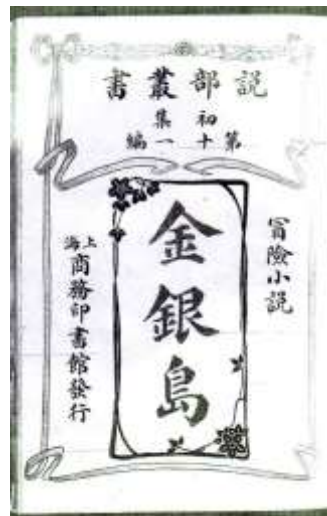 說部叢書
初集
第十一編
冒險小說
金銀島
上海
商務印書館發行